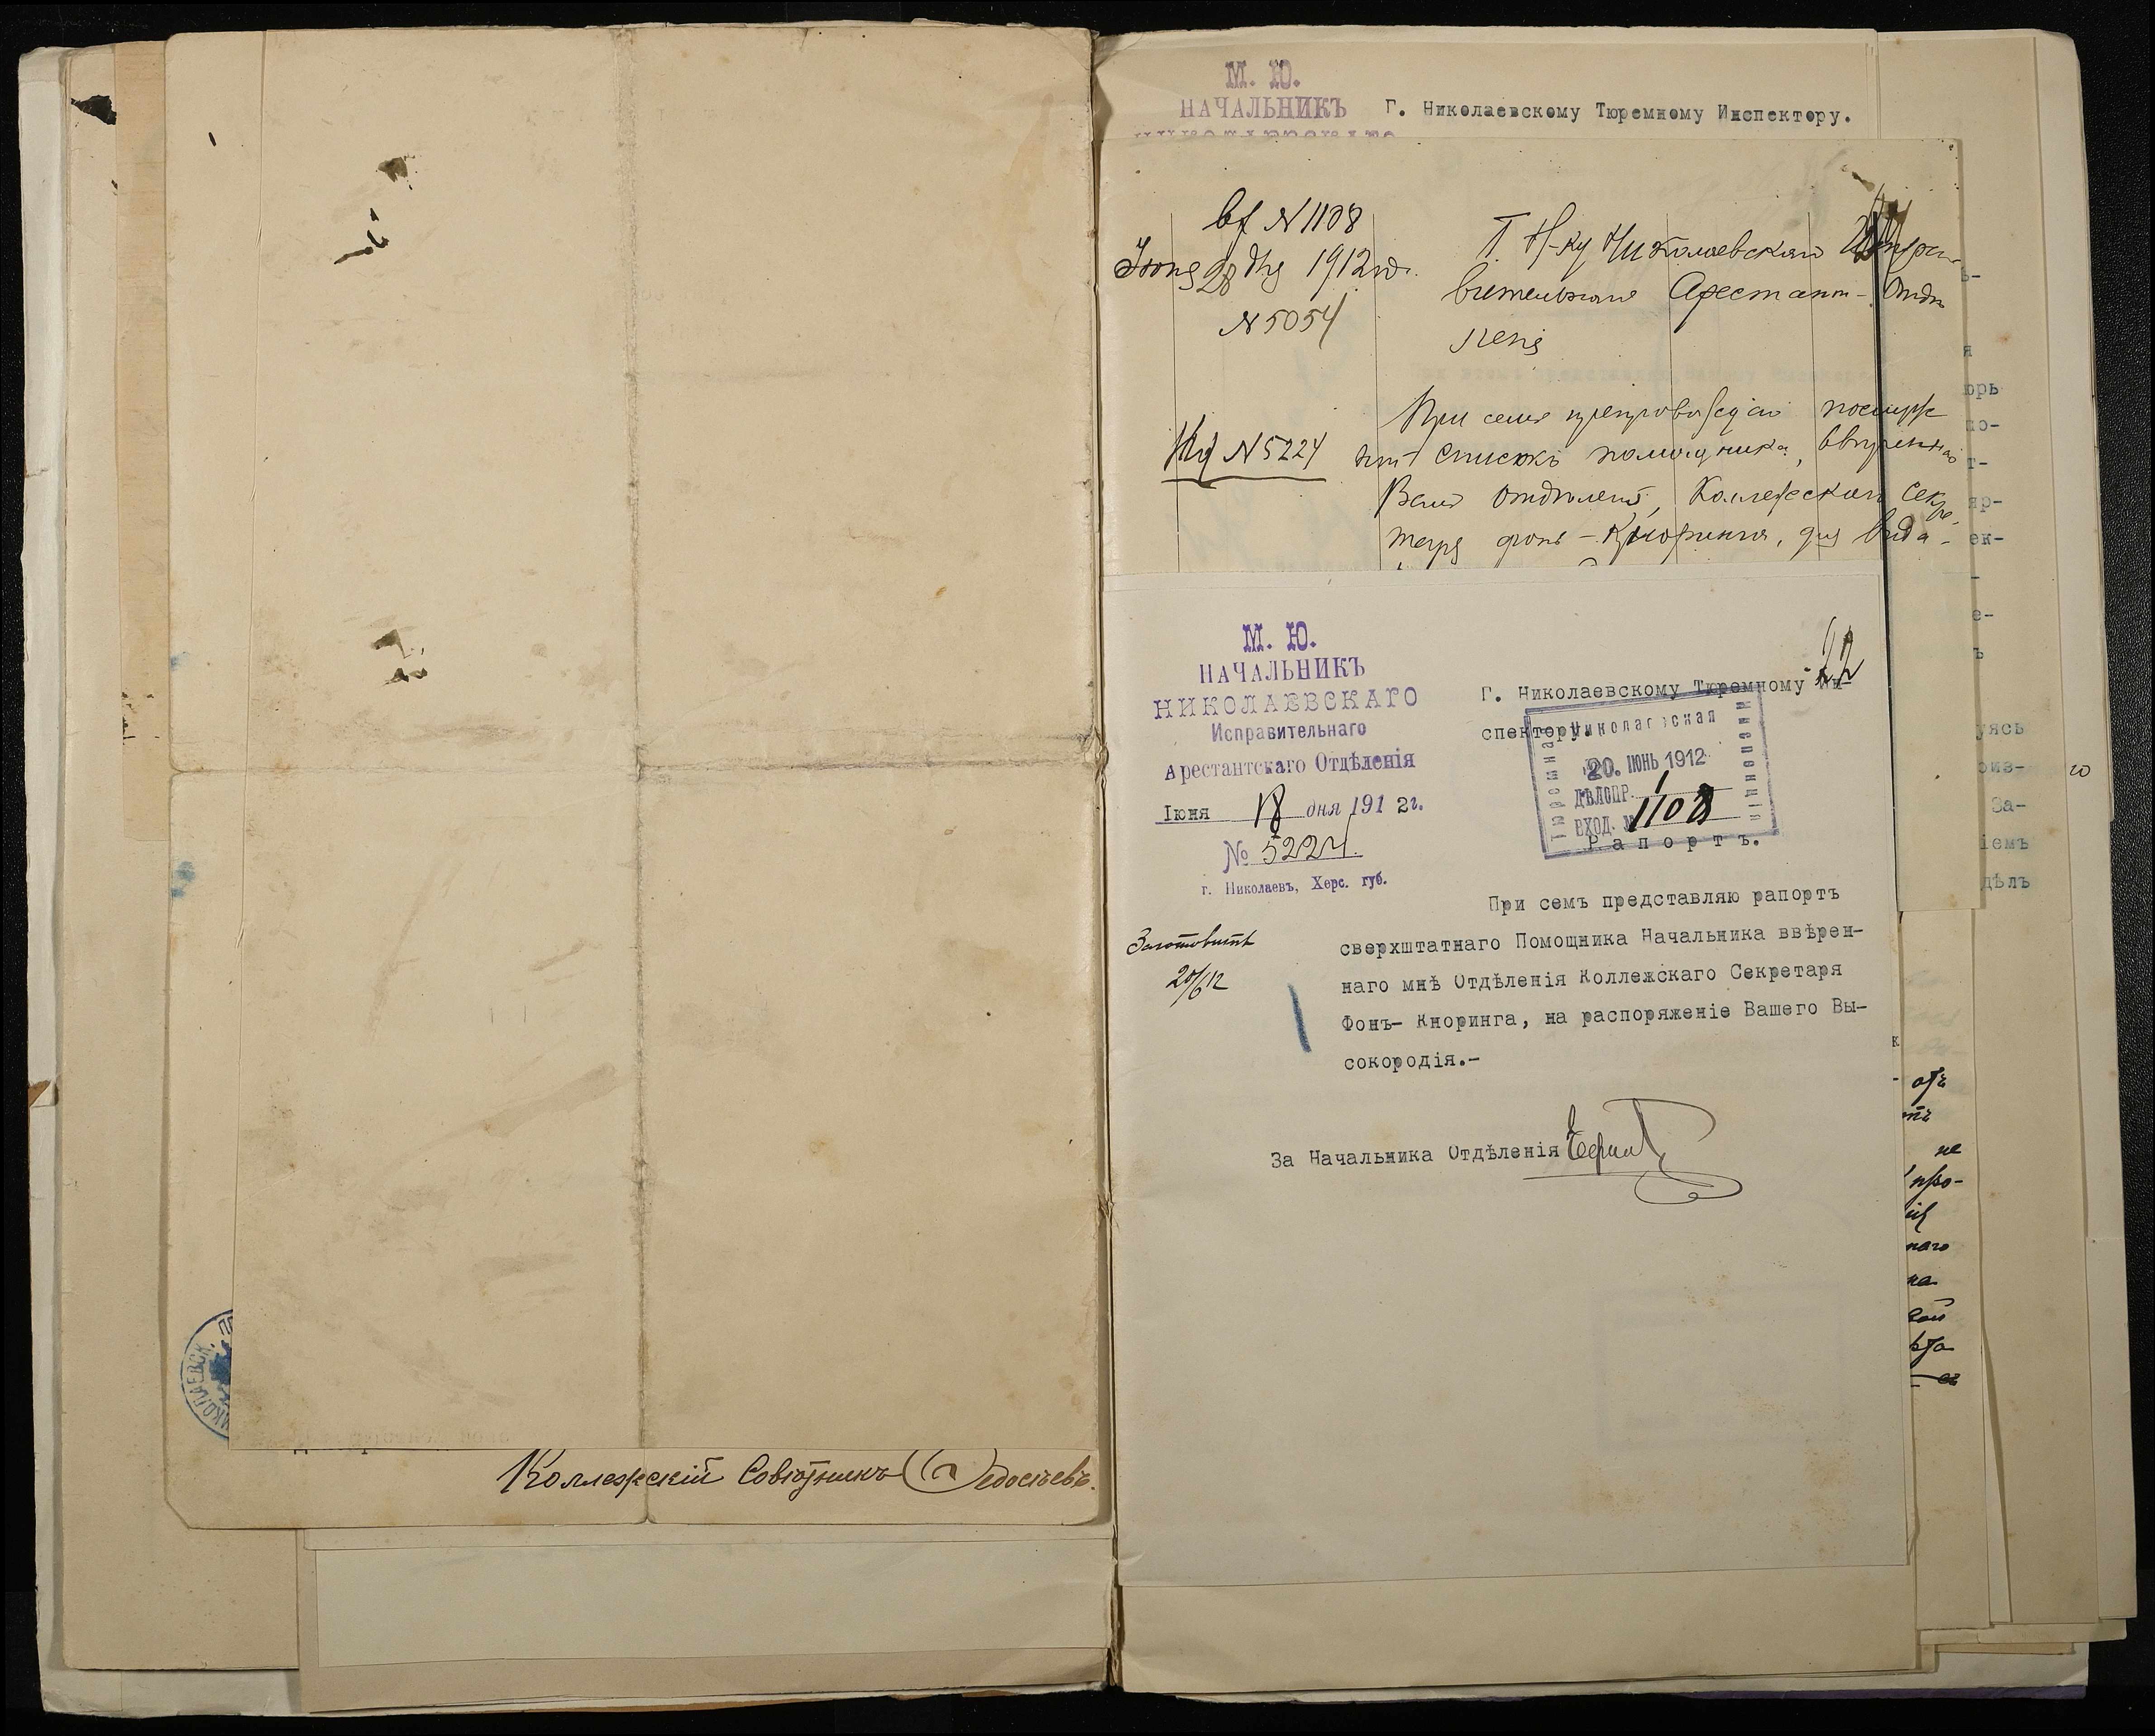 Коллежскій Совѣтникъ Федосѣевъ.
М. Ю.
НАЧАЛЬНИКЪ
Г. Николаевскому Тюремному Инспектору.
вх N 1108
Іюня 28 дня 1912 го.
N 5054
На N 5224
Г. Н-ку Николаевскаго Испра-
вительнаго Арестант. Отдѣ
ленія
При семъ препровождаю послуж
ной списокъ помощника, ввѣреннаго
Вамъ отдѣленія, Коллежскаго Секре-
таря фонъ-Кноринга, для выда-
М. Ю.
НАЧАЛЬНИКЪ
НИКОЛАЕВСКАГО
Исправительнаго
Арестантскаго Отдѣленія
Іюня 18 дня 1912 г.
№ 5224.
г. Николаевъ, Херс. губ.
Г. Николаевскому Тюремному Ин-
спектору.
Николаевская
Тюремная
Инспекція
20. ІЮНЬ 1912
ДѢЛОПР. 1
ВХОД. № 1108
Рапортъ.
При семъ представляю рапортъ
сверхштатнаго Помощника Начальника ввѣрен-
наго мнѣ Отдѣленія Коллежскаго Секретаря
Фонъ- Кноринга, на распоряженіе Вашего Вы-
сокородія.-
Заготовить
20/6 12
За Начальника Отдѣленія